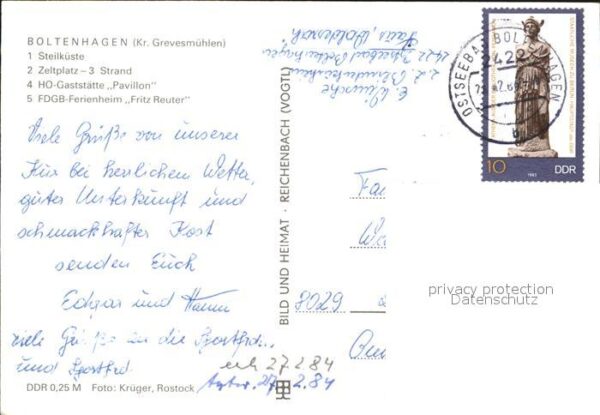 BOLTENHAGEN (Kr. Grevesmühlen)
1 Steilküste
2 Zeltplatz – 3 Strand
4 HO-Gaststätte „Pavillon"
5 FDGB-Ferienheim „Fritz Reuter"
Viele Grüße von unserer
Kur bei herrlichem Wetter,
guter Unterkunft und
schmackhafter Kost
senden Euch
Edgar und
viele Grüße an die Sportfrd...
und Sportfrd.
erh 27 2 84
Antw. 27. 2. 84
DDR 0,25 M Foto: Krüger, Rostock
BILD UND HEIMAT · REICHENBACH (VOGTL)
2422 Ostseebad Boltenhagen
OSTSEEBAD BOLTENHAGEN
2422
b
10 DDR
1983
Fa
8029
privacy protection
Datenschutz